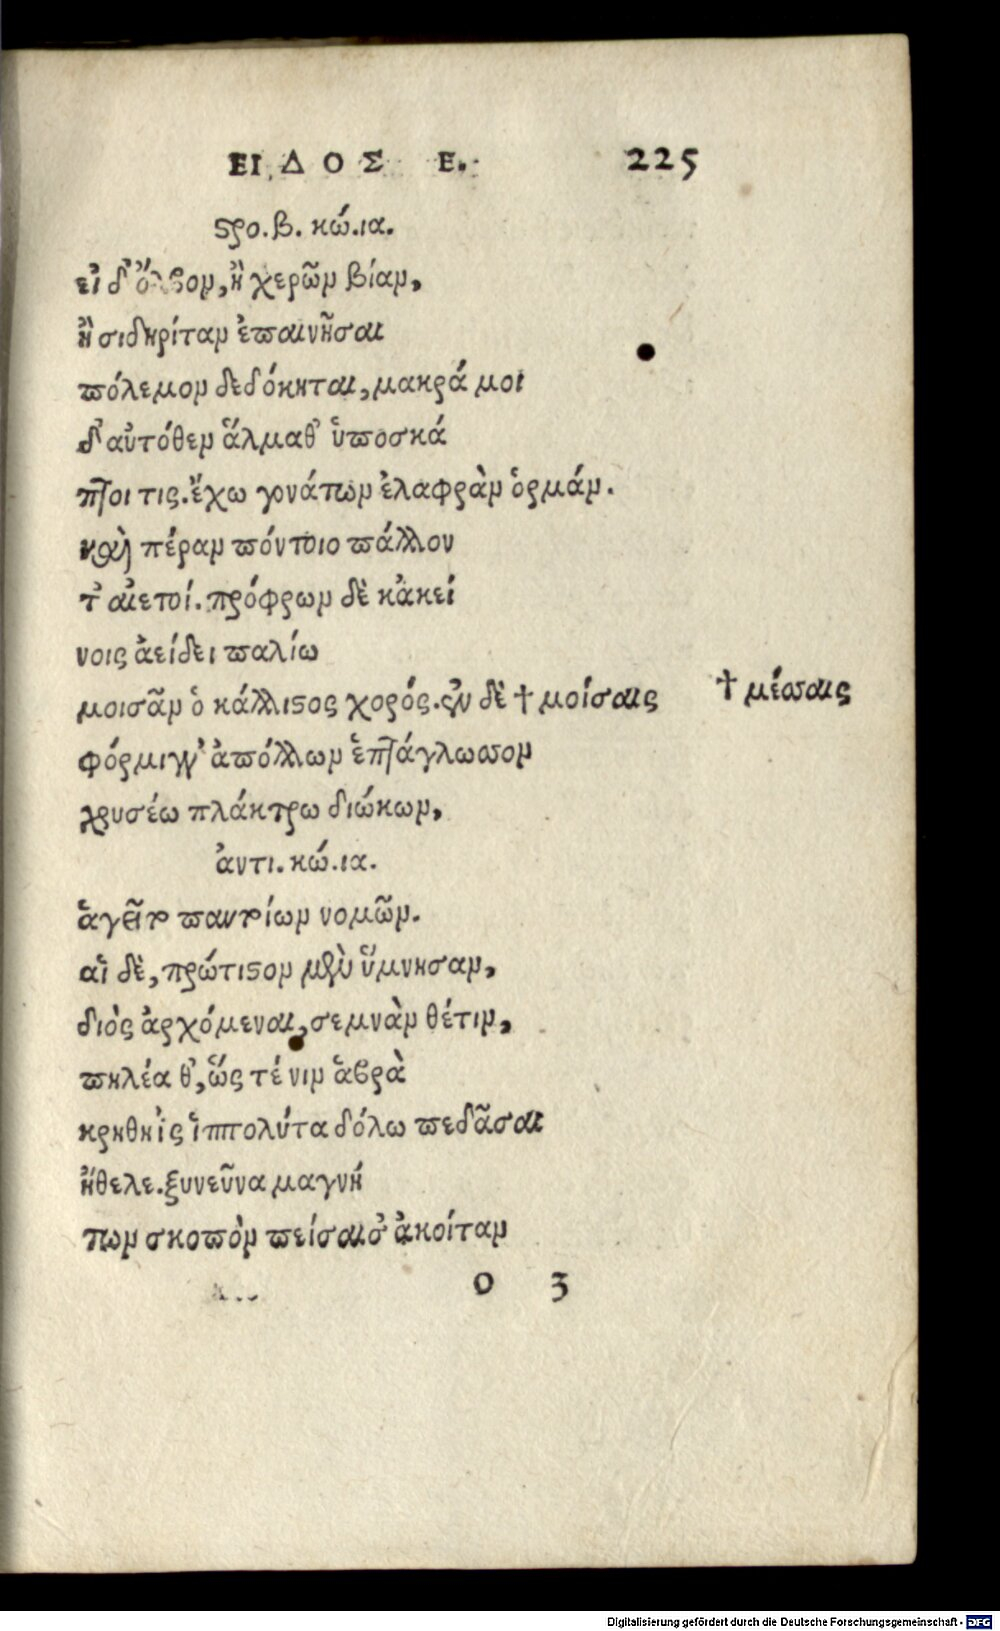 ΕΙΔΟΣ Ε. 225
στρο. β. κώ. ια.
εἰ δ' ὄλβον, ἢ χερῶν βίαν,
ἢ σιδηρίταν ἐπαινῆσαι
πόλεμον δεδόκηται, μακρά μοι
δ' αὐτόθεν ἅλμαθ' ὑποσκά
πτοι τις. ἔχω γονάτων ἐλαφρὰν ὁρμάν.
καὶ πέραν πόντοιο πάλλον
τ' αἰετοί. πρόφρων δὲ κἀκεί
νοις ἀείδει παλίω
μοισᾶν ὁ κάλλιστος χορός. ἐν δὲ † μοίσαις † μέσσαις
φόρμιγγ' ἀπόλλων ἑπτάγλωσσον
χρυσέω πλάκτρω διώκων,
ἀντι. κώ. ια.
ἁγεῖτο παντοίων νομῶν.
αἳ δὲ, πρώτιστον μὲν ὕμνησαν,
διὸς ἀρχόμεναι, σεμνὰν θέτιν,
πηλέα θ', ὥς τέ νιν ἁβρὰ
κρηθηῒς ἱππολύτα δόλω πεδᾶσαι
ἤθελε. ξυνεῦνα μαγνή
των σκοπὸν πείσαισ' ἀκοίταν
O 3
Digitalisierung gefördert durch die Deutsche Forschungsgemeinschaft - DFG